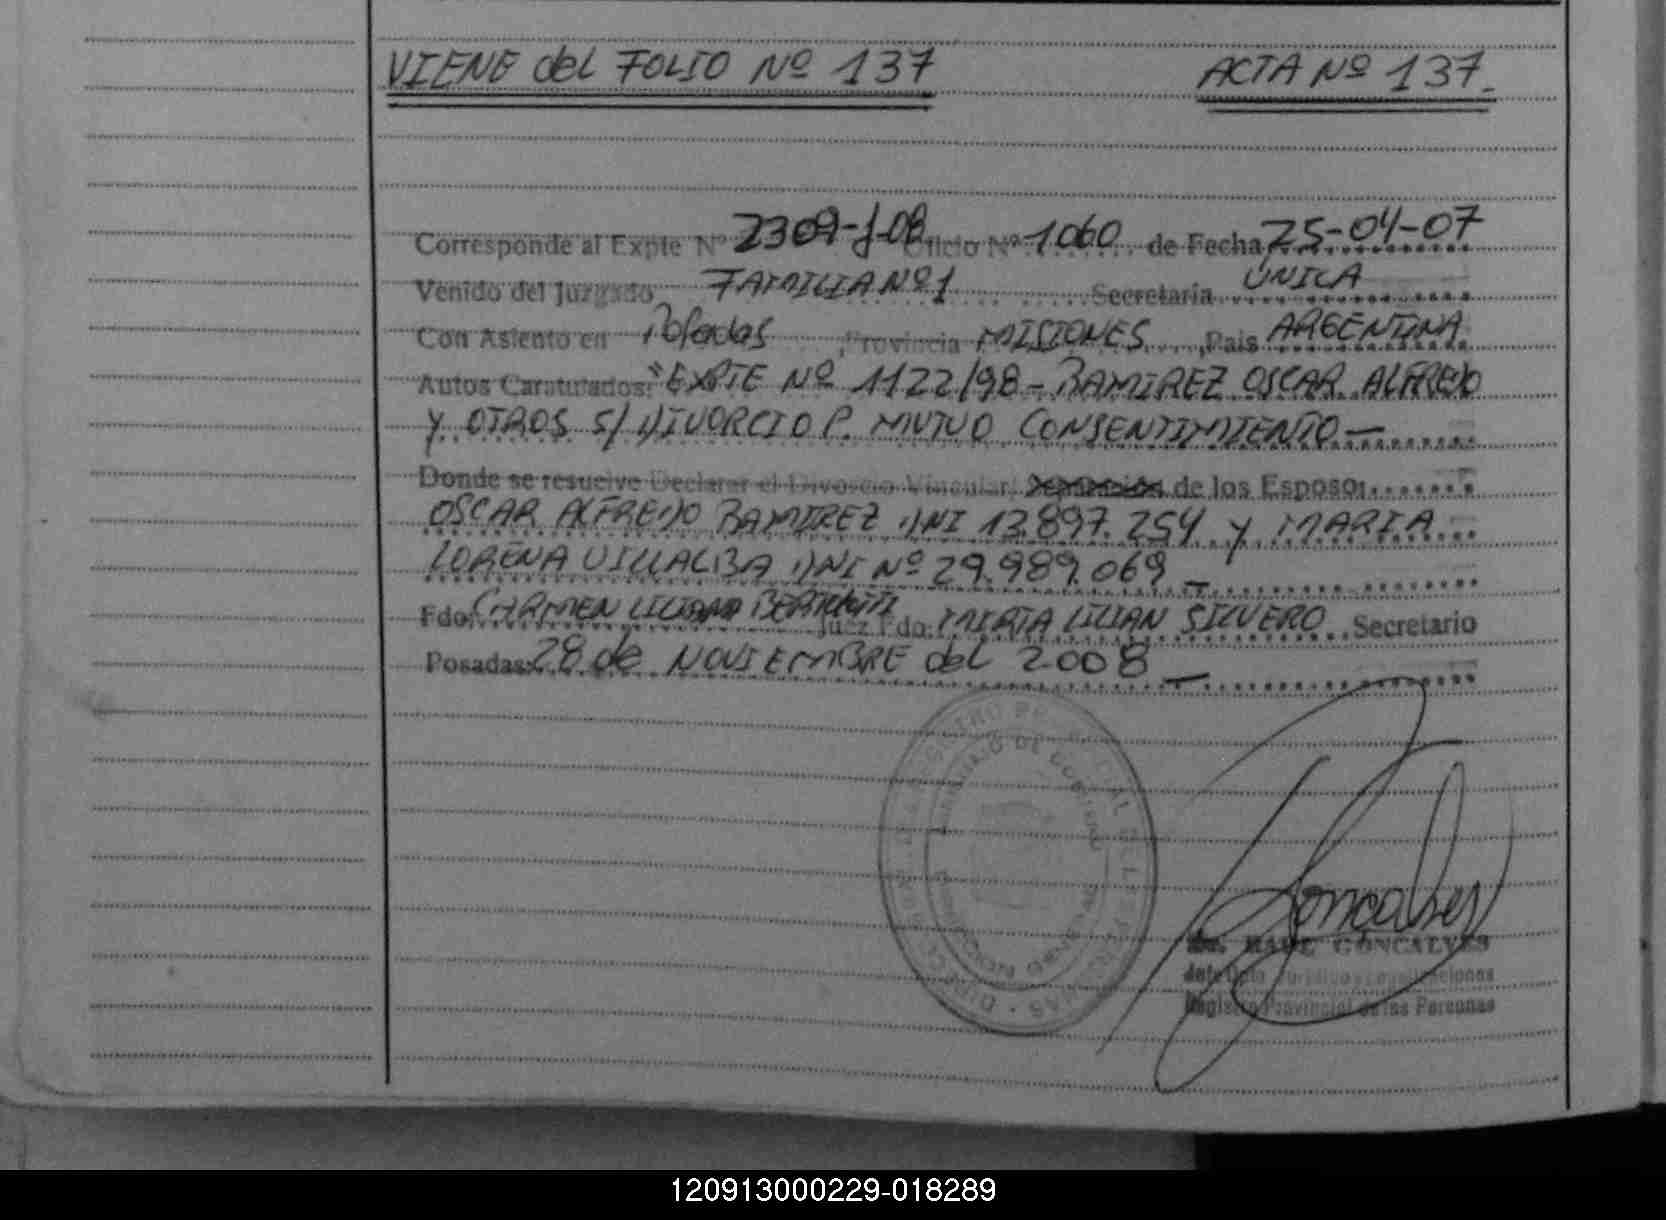 VIENE del FOLIO Nº 137 ACTA Nº 137.
Corresponde al Expte Nº 2309-J-08 Oficio Nº 1060 de Fecha 25-04-07
Venido del Juzgado FAMILIA Nº 1 Secretaria UNICA
Con Asiento en Posadas, Provincia MISIONES, Pais ARGENTINA
Autos Caratulados: "EXPTE Nº 1122/98 - RAMIREZ OSCAR ALFREDO
Y OTROS S/ DIVORCIO P. MUTUO CONSENTIMIENTO —
Donde se resuelve Declarar el Divorcio Vincular/ Separación de los Esposo:
OSCAR ALFREDO RAMIREZ DNI 13.897.254 y MARIA
LORENA VILLALBA DNI Nº 29.989.069 —
Fdo. CARMEN LILIANA Juez Fdo: MIRTA LILIAN SILVERO Secretario
Posadas: 28 de NOVIEMBRE del 2008 —
Goncalves
GONCALVES
Registro Provincial de las Personas
120913000229-018289